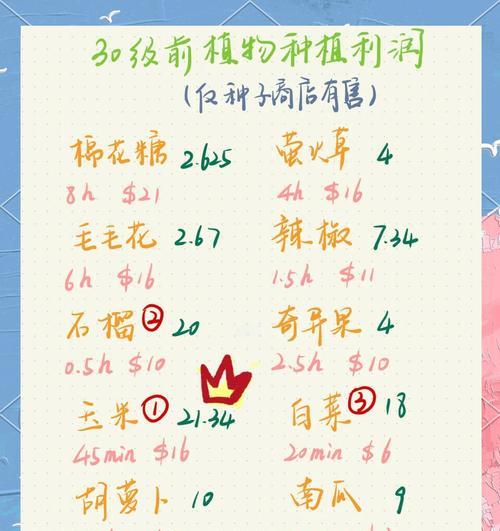 30级前植物种植利润
(仅种子商店有售)
棉花糖 2.625 萤火草 4
8h $21 4h $16
毛毛花 2.67 辣椒 7.34
6h $16 1.5h $11
石榴② 20 奇异果 4
0.5h $10 2.5h $10
玉米① 21.34 白菜③ 18
45min $16 20min $6
胡萝卜 10 南瓜 9